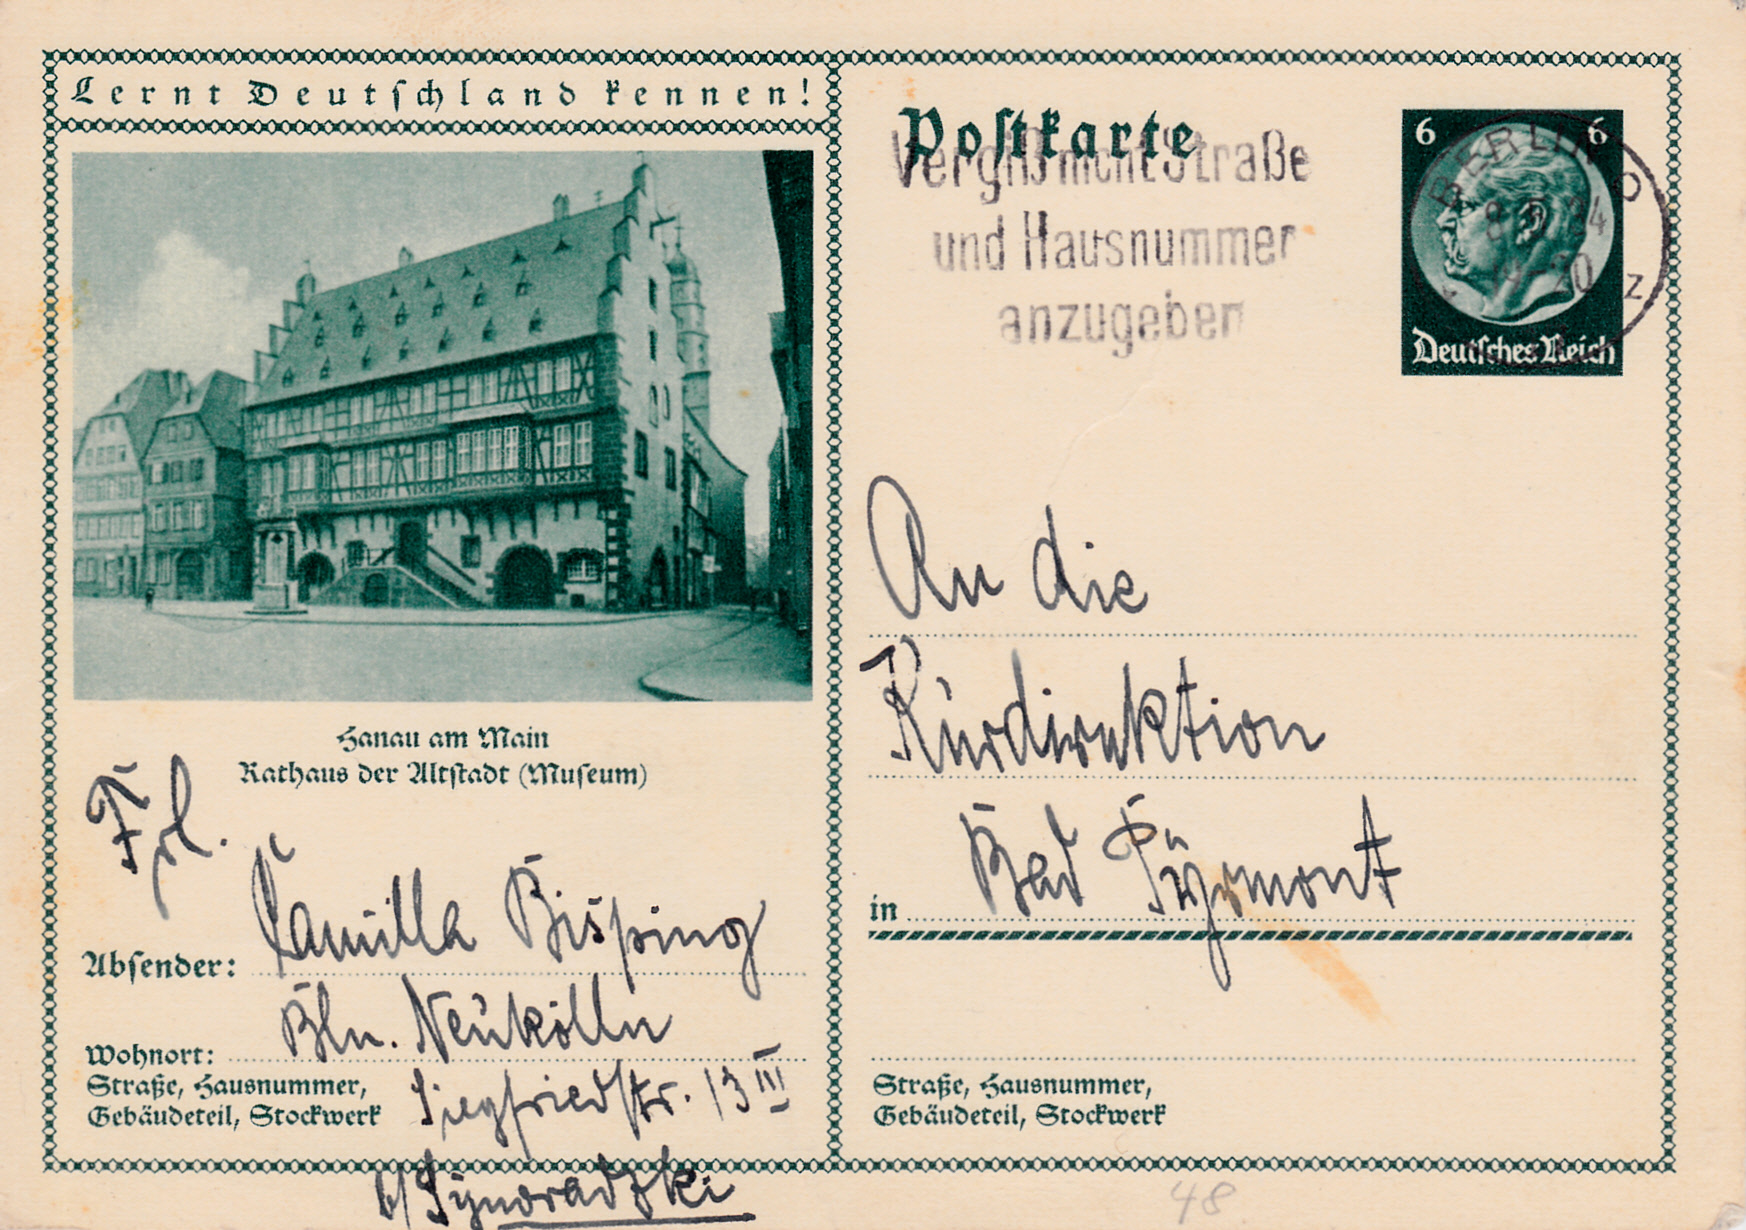 Lernt Deutschland kennen!
Hanau am Main
Rathaus der Altstadt (Museum)
Frl.
Absender: Camilla Bisping
Wohnort: Bln. Neukölln
Straße, Hausnummer,
Gebäudeteil, Stockwerk
Siegfriedstr. 13 III
b/
Postkarte
Vergiß nicht Straße
und Hausnummer
anzugeben
6 6
Deutsches Reich
BERLIN O
34
20
z
An die
Kurdirektion
in Bad Pyrmont
Straße, Hausnummer,
Gebäudeteil, Stockwerk
48